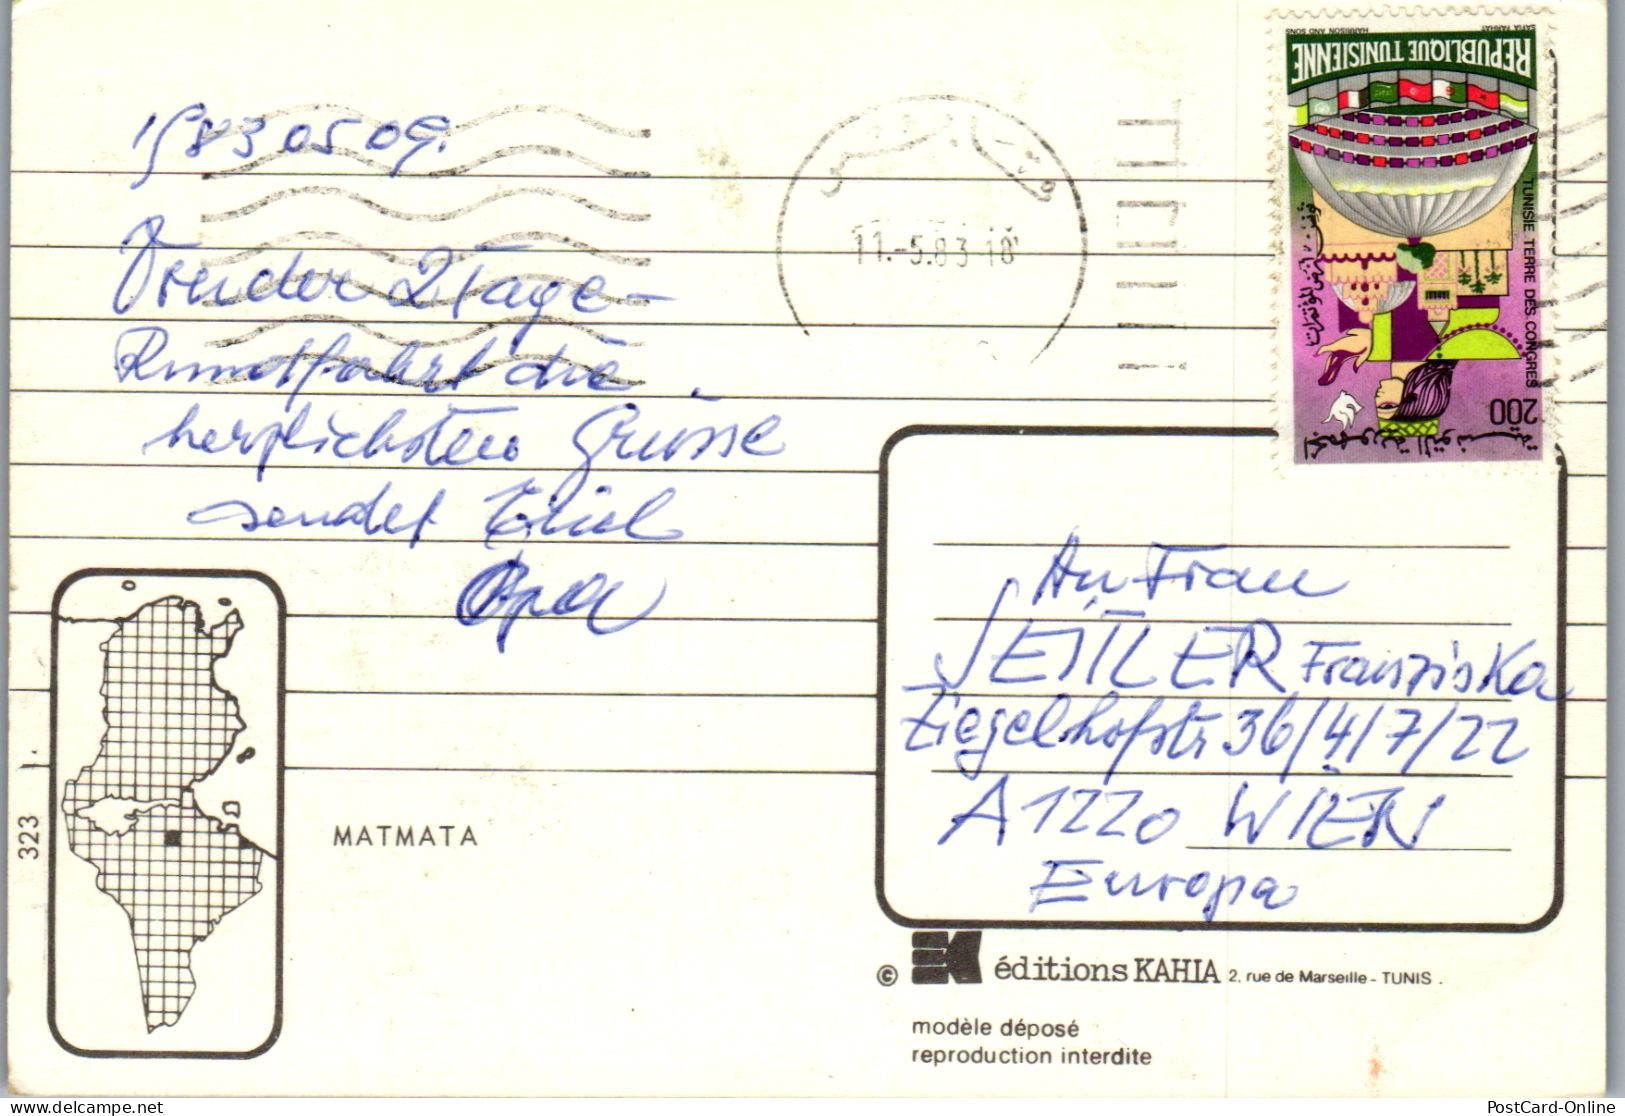 1983 05 09.
Von der 2 Tage-
Rundfahrt die
herzlichsten Grüsse
sendet
Opa
MATMATA
323
11.-5.83-18
REPUBLIQUE TUNISIENNE
SAFIA FARHAT
HARRISON AND SONS
TUNISIE TERRE DES CONGRES
تونس أرض المؤتمرات
200
الجمهورية التونسية
An Frau
SEITLER Franziska
Ziegelhofstr 36/4/7/22
A 1220 WIEN
Europa
© éditions KAHIA 2, rue de Marseille - TUNIS .
modèle déposé
reproduction interdite
PostCard-Online.com
PostCard-Online